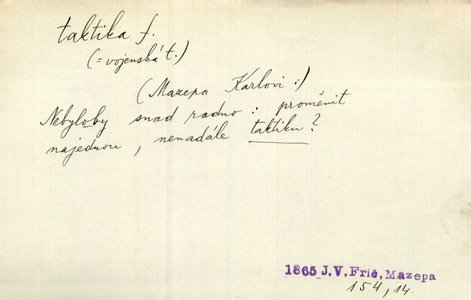 taktika f.
(= vojenská t.)
(Mazepa Karlovi:)
Nebyloby snad radno: proměnit
najednou, nenadále taktiku?
1865 J. V. Frič, Mazepa
154, 14.